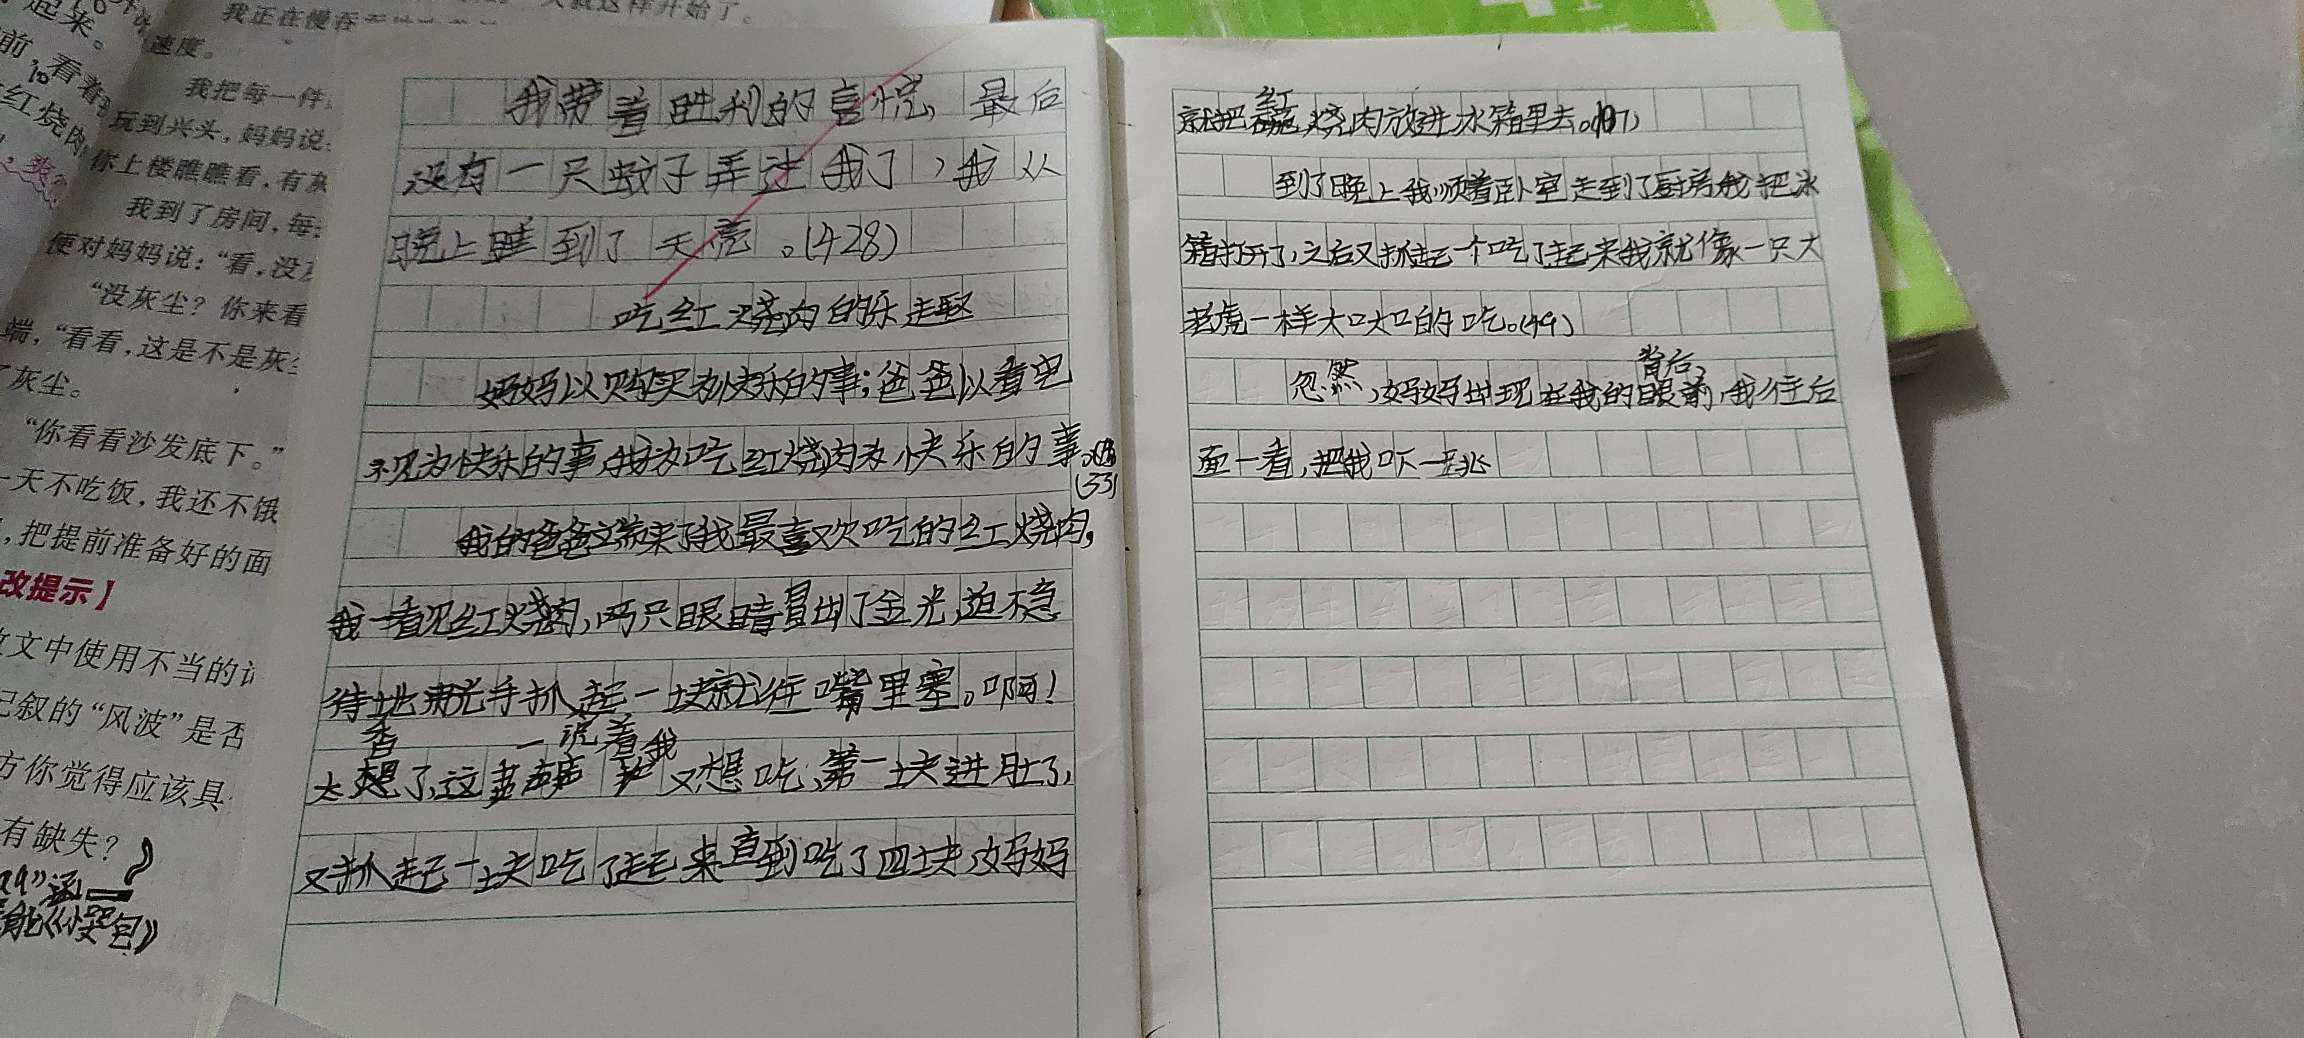 起来。
前，看着
红烧肉
我正在慢吞
这样开始了。
速度。
我把每一件
玩到兴头，妈妈说：
你上楼瞧瞧看，有灰
我到了房间，每
便对妈妈说：“看，没
“没灰尘？你来看
端，“看看，这是不是灰尘
灰尘。
“你看看沙发底下。”
一天不吃饭，我还不饿
，把提前准备好的面
改提示】
文中使用不当的
记叙的“风波”是否
方你觉得应该具
有缺失？
我带着胜利的喜悦，最后
没有一只蚊子弄过我了，我从
晚上睡到了天亮。(428)
吃红烧肉的乐趣
妈妈以购买为快乐的事；爸爸以看电
视为快乐的事，我为吃红烧肉为快乐的事。
(33)
我的爸爸端来了我最喜欢吃的红烧肉，
我一看见红烧肉，两只眼睛冒出了金光，迫不急
待地用手抓起一块就往嘴里塞。啊！
香 一说着我
太想了，这 又想吃，第一块进肚了，
又抓起一块吃了起来直到吃了四块，妈妈
红
就把烧肉放进冰箱里去。(107)
到了晚上我顺着卧室走到了厨房我把冰
箱打开了，之后又抓起一个吃了起来我就像一只大
老虎一样大口大口的吃。(49)
背后，
忽然，妈妈出现在我的眼前，我往后
面一看，把我吓一跳